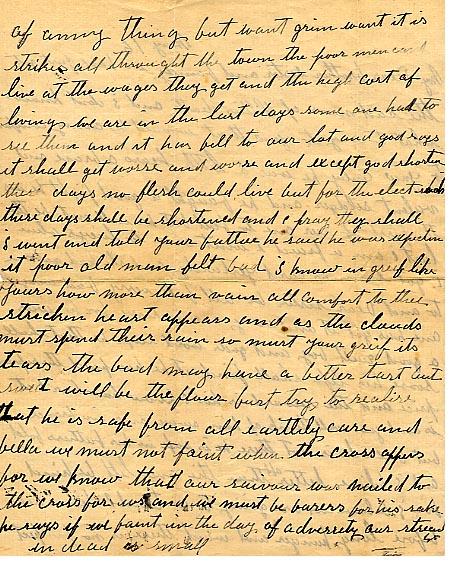 of anny thing but want grim want it is
strikes all throught the town the poor men cant
live at the wages they get and the high cost of
living we are in the last days some one had to
see them and it has fell to our lot and god says
it shall get worse and worse and except god shorten
there days no flesh could live but for the elect sake
there days shall be shortened and i pray they shall
i went and told your futher he said he was expectin
it poor old man felt bad i know in greif like
yours how more than vain all comfort to thee
stricken heart appears and as the clouds
must spend their rain so must your greif its
tears the bud may have a bitter tast but
sweet will be the flour burt try to realise
that he is safe from all earthly care and
bella we must not faint when the cross affers
for we know that our saivour was nailed to
the cross for us and we must be barers for his sake
he says if we faint in the day of adversity our stren
in dead is small